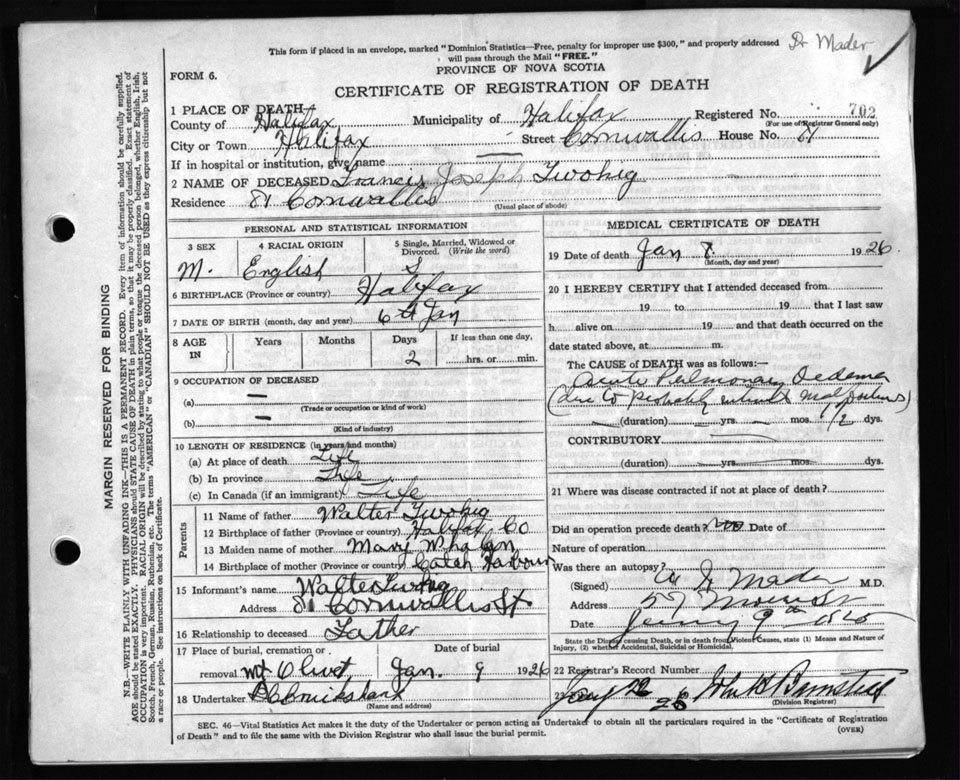 This form if placed in an envelope, marked "Dominion Statistics—Free, penalty for improper use $300," and properly addressed
will pass through the Mail "FREE."
Dr Mader
PROVINCE OF NOVA SCOTIA
FORM 6.
CERTIFICATE OF REGISTRATION OF DEATH
1 PLACE OF DEATH
County of Halifax Municipality of Halifax Registered No. 702
(For use of Registrar General only)
City or Town Halifax Street Cornwallis House No. 81
If in hospital or institution, give name —
2 NAME OF DECEASED Francis Joseph Twohig
Residence 81 Cornwallis
(Usual place of abode)
PERSONAL AND STATISTICAL INFORMATION
3 SEX 4 RACIAL ORIGIN 5 Single, Married, Widowed or
Divorced. (Write the word)
M. English S
6 BIRTHPLACE (Province or country) Halifax
7 DATE OF BIRTH (month, day and year) 6th Jan
8 AGE IN Years Months Days If less than one day,
2 hrs. or min.
9 OCCUPATION OF DECEASED
(a) —
(Trade or occupation or kind of work)
(b) —
(Kind of industry)
10 LENGTH OF RESIDENCE (in years and months)
(a) At place of death Life
(b) In province Life
(c) In Canada (if an immigrant) Life
Parents
11 Name of father Walter Twohig
12 Birthplace of father (Province or country) Halifax Co
13 Maiden name of mother Mary Whalen
14 Birthplace of mother (Province or country) Harbour
15 Informant's name Walter Twohig
Address 81 Cornwallis St
16 Relationship to deceased Father
17 Place of burial, cremation or Date of burial
removal Mt Olivet Jan. 9 1926
18 Undertaker
(Name and address)
MEDICAL CERTIFICATE OF DEATH
19 Date of death Jan 8 1926
(Month, day and year)
20 I HEREBY CERTIFY that I attended deceased from
19 to 19 that I last saw
h alive on 19 and that death occurred on
date stated above, at m.
The CAUSE OF DEATH was as follows:
Acute Pulmonary Oedema
(due to probably
(duration) yrs. mos. 1/2 dys.
CONTRIBUTORY
(duration) yrs. mos. dys.
21 Where was disease contracted if not at place of death?
Did an operation precede death? no Date of
Nature of operation
Was there an autopsy?
(Signed) Mader M.D.
Address 57 Morris St
Date 9th
State the Disease causing Death, or in death from Violent Causes, state (1) Means and Nature of
Injury, (2) whether Accidental, Suicidal or Homicidal.
22 Registrar's Record Number
23 26
(Division Registrar)
SEC. 46—Vital Statistics Act makes it the duty of the Undertaker or person acting as Undertaker to obtain all the particulars required in the "Certificate of Registration
of Death" and to file the same with the Division Registrar who shall issue the burial permit.
(OVER)
MARGIN RESERVED FOR BINDING
N.B.—WRITE PLAINLY WITH UNFADING INK—THIS IS A PERMANENT RECORD. Every item of information should be carefully supplied.
AGE should be stated EXACTLY. PHYSICIANS should STATE CAUSE OF DEATH in plain terms, so that it may be properly classified. Exact statement of
OCCUPATION is very important. RACIAL ORIGIN will be described by stating to what people or tongue the deceased person belonged, whether English, Irish,
Scotch, French, German, Russian, Ruthenian, etc. The terms "AMERICAN" or "CANADIAN" SHOULD NOT BE USED as they express citizenship but not
a race or people. See instructions on back of Certificate.